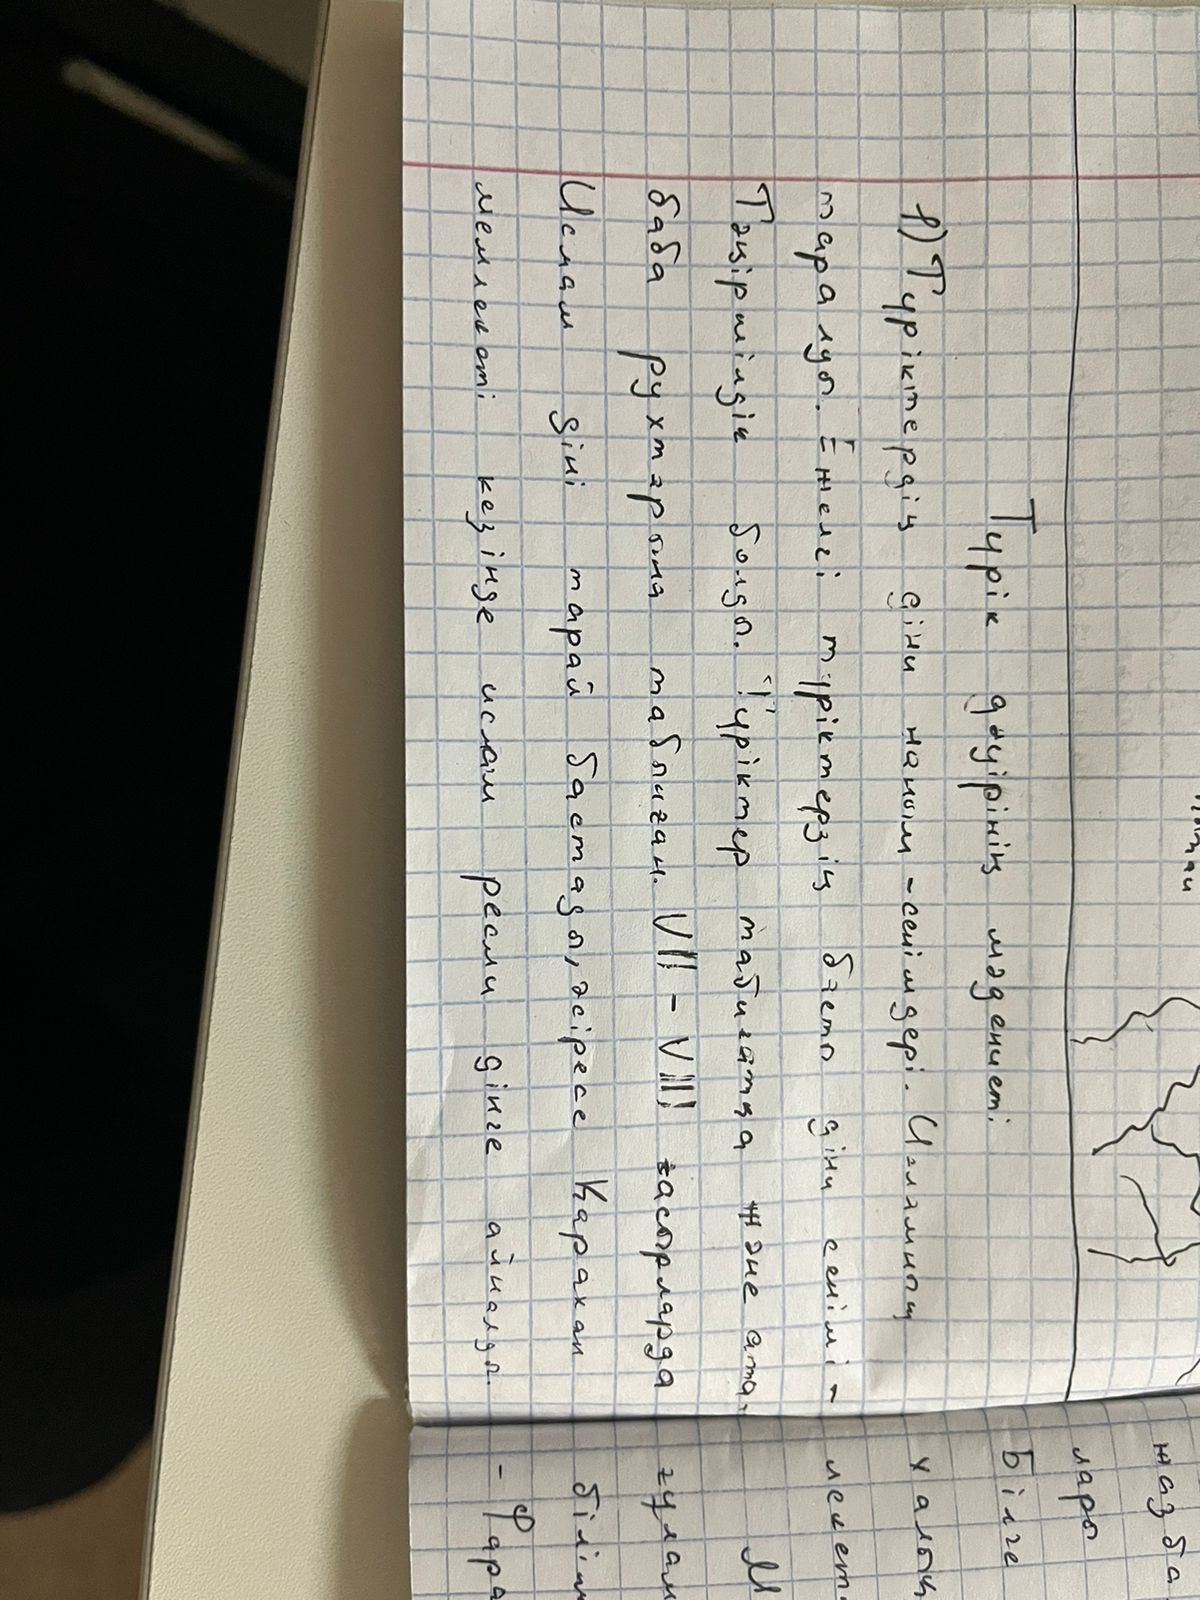 Түрік дәуірінің мәдениеті
1) Түріктердің діни наным-сенімдері. Исламның
таралуы. Ежелгі түріктерзің басты діни сенімі -
Тәңіршілдік болды. Түріктер табиғатқа және ата-
баба рухтарына табынған. VII - VIII ғасырларда
Ислам діні тарай бастады, әсіресе Қарахан
мемлекеті кезінде ислам ресми дінге айналды.
жазба
лары
Білге
халық
лекет
М
ғулам
білім
- Фара